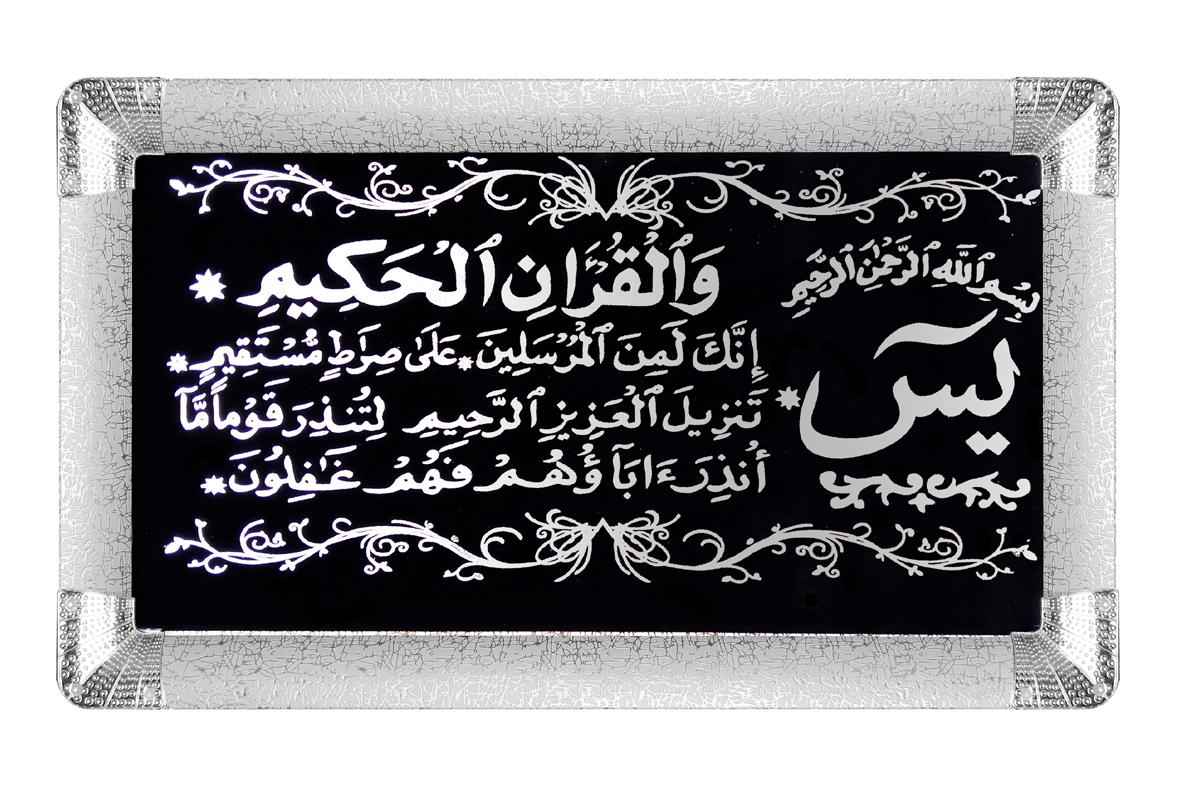 بِسْمِ ٱللَّهِ ٱلرَّحْمَٰنِ ٱلرَّحِيمِ
يسٓ
وَٱلْقُرْاٰنِ ٱلْحَكِيمِ
إِنَّكَ لَمِنَ ٱلْمُرْسَلِينَ * عَلَىٰ صِرَٰطٍ مُّسْتَقِيمٍ
تَنزِيلَ ٱلْعَزِيزِ ٱلرَّحِيمِ لِتُنذِرَ قَوْماً مَّآ
أُنذِرَ ءَابَآؤُهُمْ فَهُمْ غَٰفِلُونَ